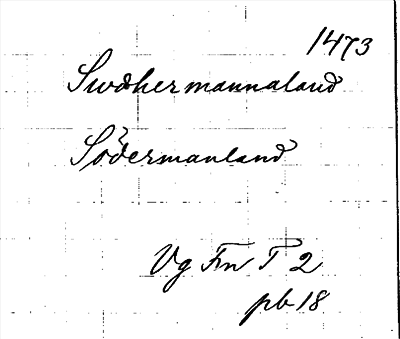 1473
Swdhermannaland
Södermanland
Vg Fm T 2
pb 18